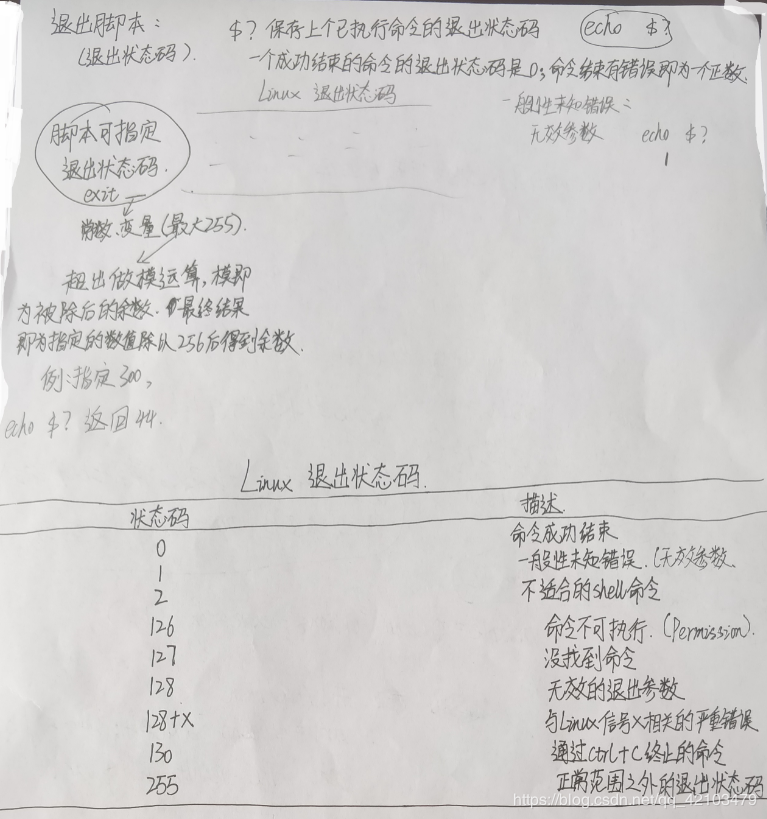 退出脚本: $? 保存上个已执行命令的退出状态码 echo $?
(退出状态码). 一个成功结束的命令的退出状态码是0; 命令结束有错误即为一个正数.
Linux 退出状态码 一般性未知错误:
无效参数 echo $?
1
脚本可指定
退出状态码.
exit
常数、变量(最大255).
超出做模运算, 模即
为被除后的余数. 最终结果
即为指定的数值除以256后得到余数.
例:指定300,
echo $? 返回44.
Linux 退出状态码.
状态码 描述.
0 命令成功结束
1 一般性未知错误. (无效参数.
2 不适合的shell命令
126 命令不可执行. (Permission).
127 没找到命令
128 无效的退出参数
128+X 与Linux信号X相关的严重错误
130 通过Ctrl+C终止的命令
255 正常范围之外的退出状态码
https://blog.csdn.net/qq_42103479